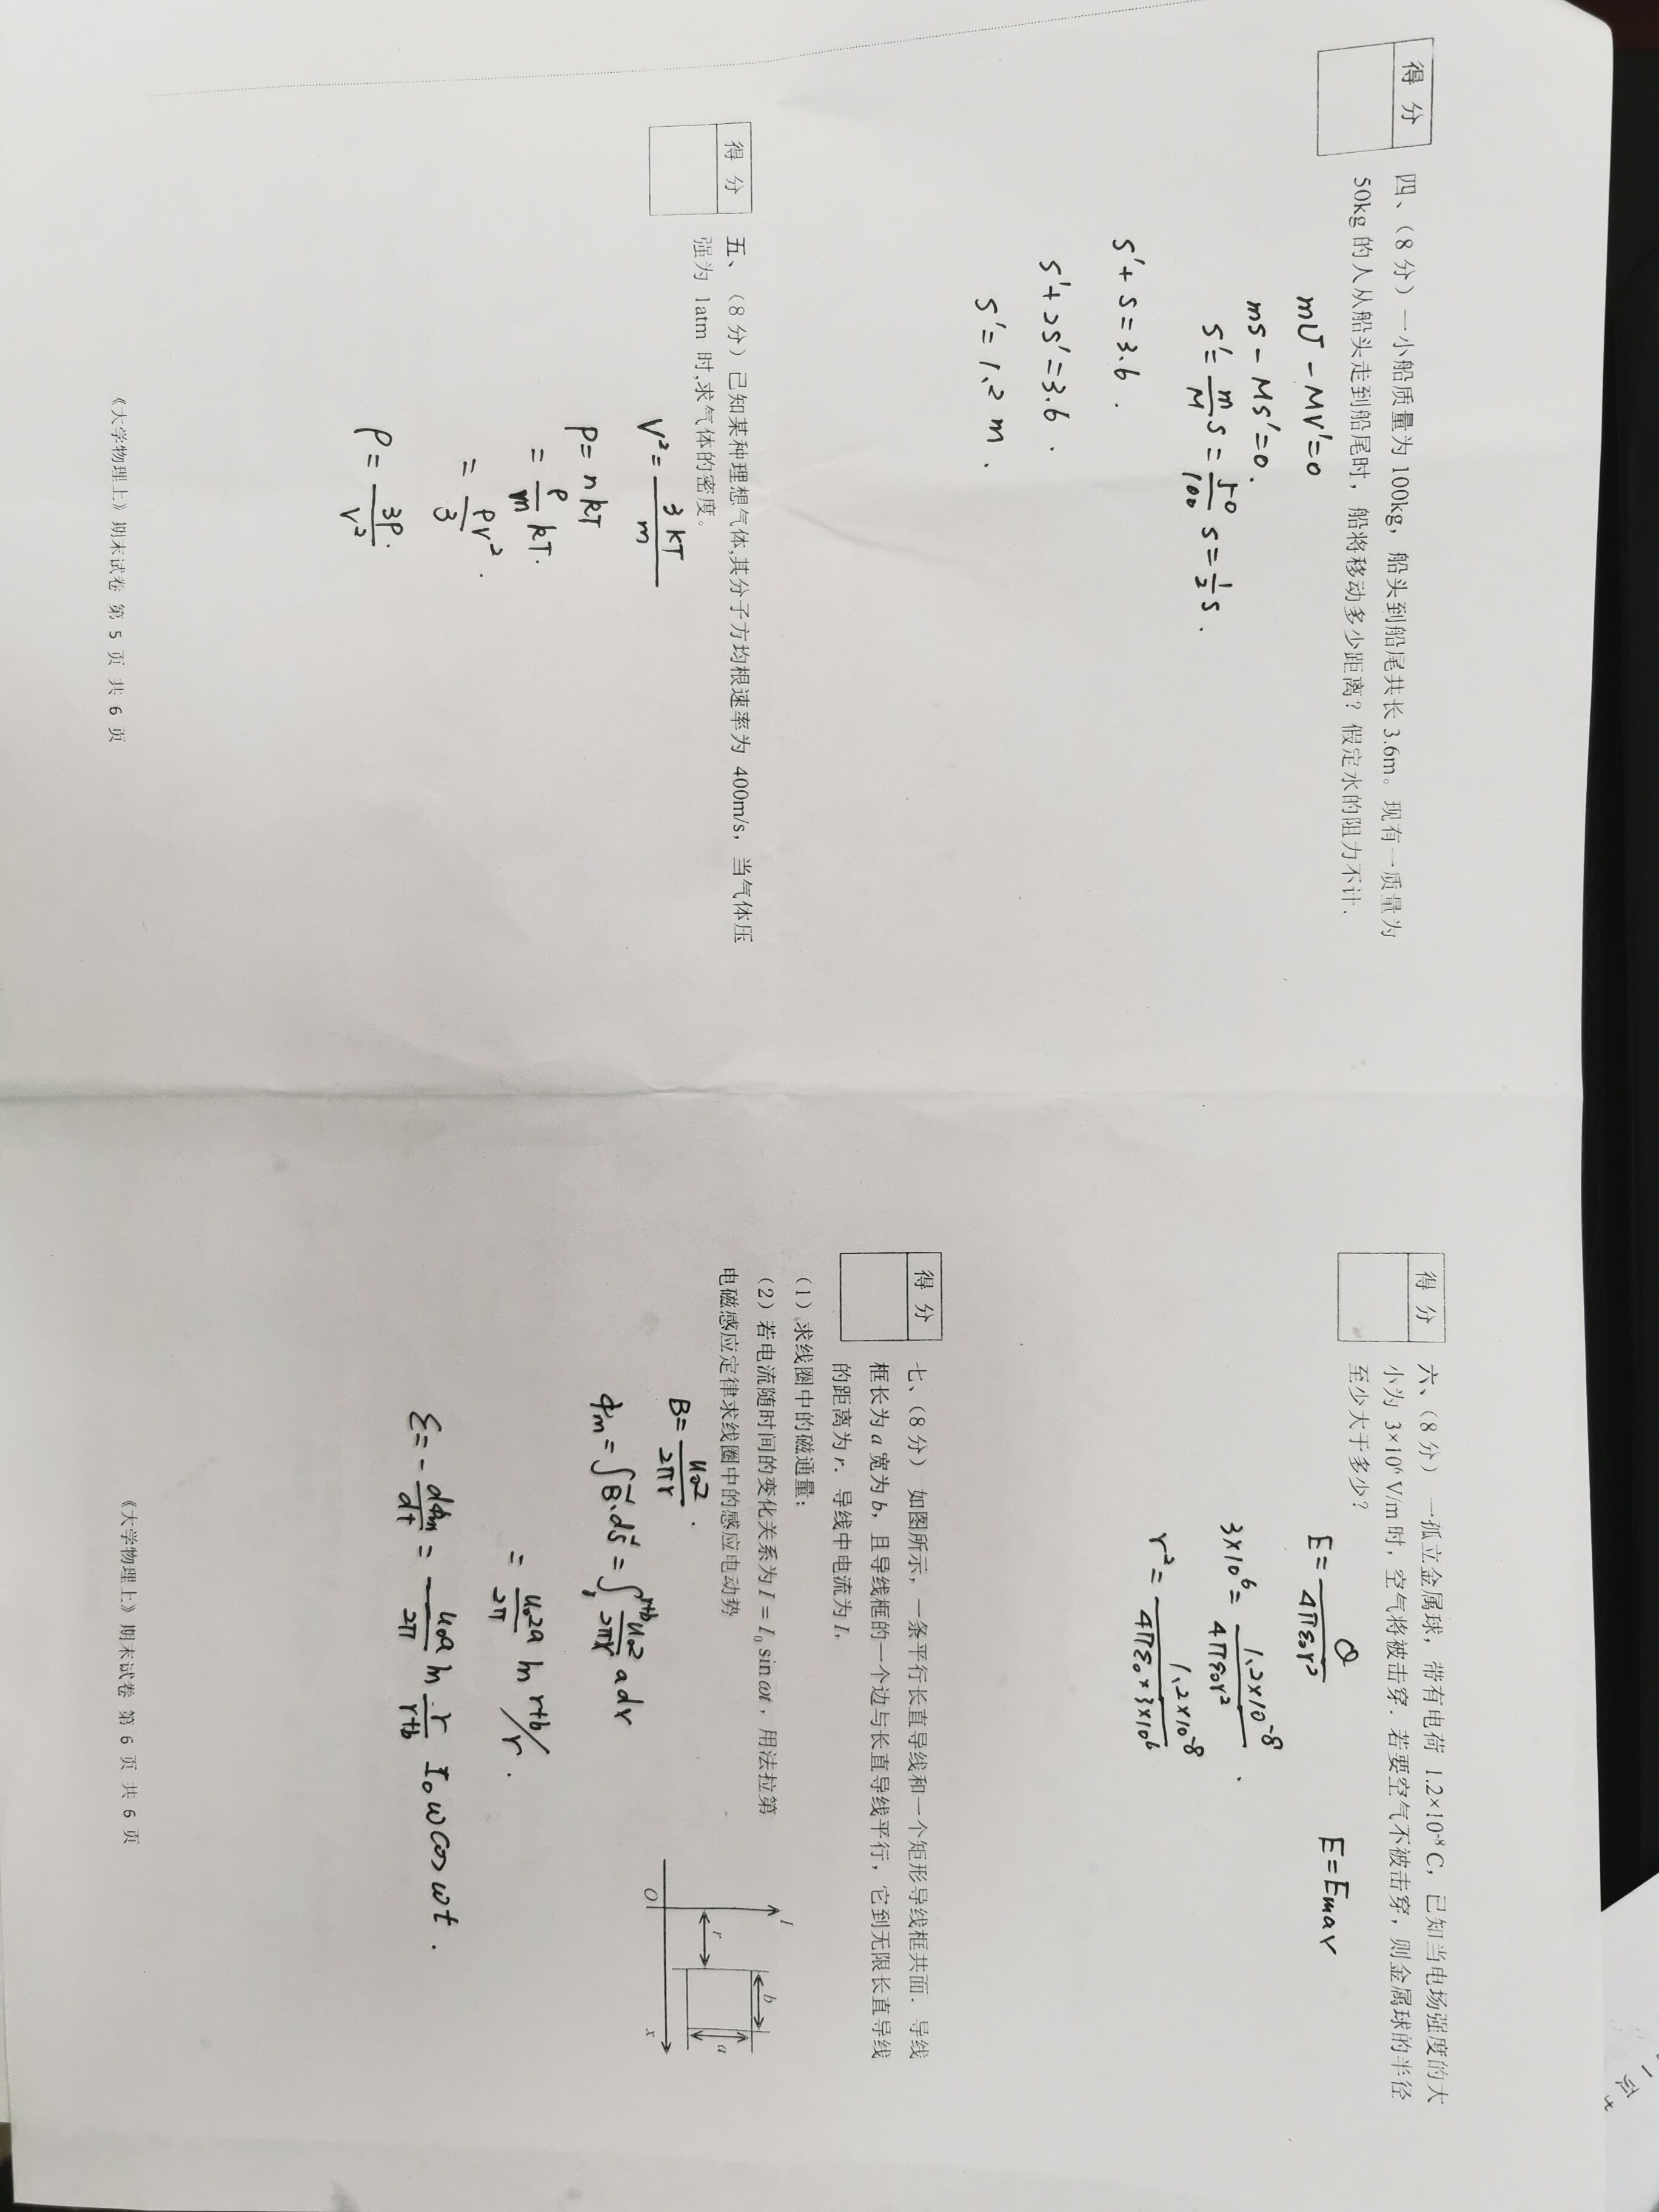 第1页 共
得 分
四、（8 分）一小船质量为 100kg，船头到船尾共长 3.6m。现有一质量为
50kg 的人从船头走到船尾时，船将移动多少距离？假定水的阻力不计．
mU − MV′=0
ms − Ms′=0.
s′= m/M s = 50/100 s = 1/2 s .
s′+ s = 3.6 .
s′+2s′=3.6 .
s′= 1.2 m .
得 分
五、（8 分）已知某种理想气体,其分子方均根速率为 400m/s，当气体压
强为 1atm 时,求气体的密度。
V²= 3kT/m
P= nkT
= ρ/m kT.
= ρv²/3 .
ρ = 3P/V² .
《大学物理上》期末试卷 第 5 页 共 6 页
得 分
六、（8 分） 一孤立金属球，带有电荷 1.2×10⁻⁸ C，已知当电场强度的大
小为 3×10⁶ V/m 时，空气将被击穿．若要空气不被击穿，则金属球的半径
至少大于多少？
E= Q/4πε₀r² E=Emax
3×10⁶= 1.2×10⁻⁸/4πε₀r² .
r²= 1.2×10⁻⁸/4πε₀×3×10⁶
得 分
七、（8 分） 如图所示，一条平行长直导线和一个矩形导线框共面．导线
框长为 a 宽为 b，且导线框的一个边与长直导线平行，它到无限长直导线
的距离为 r．导线中电流为 I,
（1）求线圈中的磁通量；
（2）若电流随时间的变化关系为 I = I₀ sin ωt，用法拉第
电磁感应定律求线圈中的感应电动势
I
b
r
a
O
x
B= u₀I/2πr .
ϕm = ∫B⃗·ds⃗ = ∫ᵣʳ⁺ᵇ u₀I/2πr a dr
= u₀Ia/2π ln r+b/r .
ε= − dϕm/dt = u₀a/2π ln r/r+b I₀ ω cos ωt .
《大学物理上》期末试卷 第 6 页 共 6 页